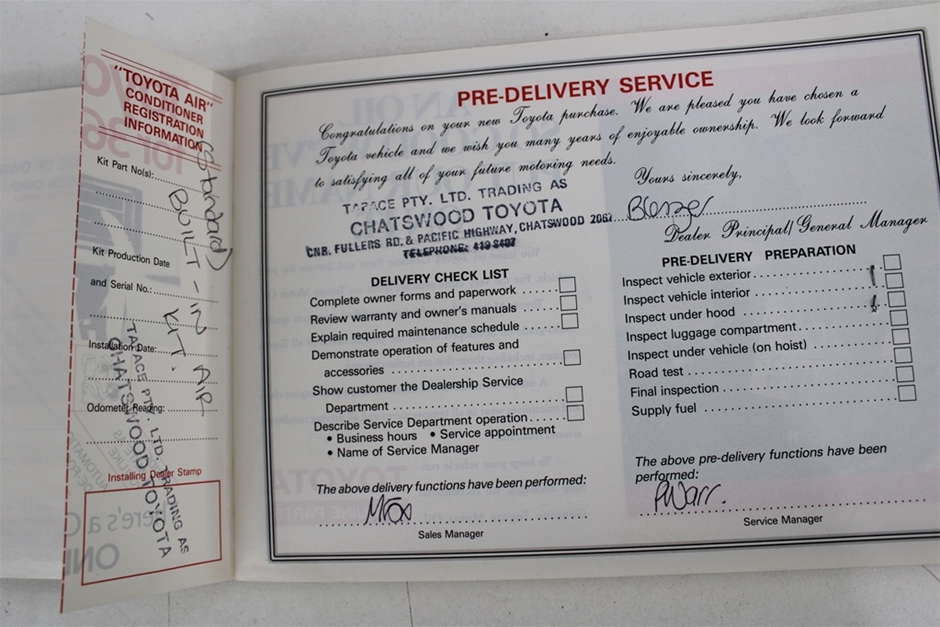 "TOYOTA AIR"
CONDITIONER
REGISTRATION
INFORMATION
Kit Part No(s):
Kit Production Date
and Serial No.:
Installation Date:
Odometer Reading:
Installing Dealer Stamp
(Standard)
BUILT-IN AIR
KIT.
TAPACE PTY. LTD. TRADING AS
CHATSWOOD TOYOTA
PRE-DELIVERY SERVICE
Congratulations on your new Toyota purchase. We are pleased you have chosen a
Toyota vehicle and we wish you many years of enjoyable ownership. We look forward
to satisfying all of your future motoring needs.
Yours sincerely,
TAPACE PTY. LTD. TRADING AS
CHATSWOOD TOYOTA
CNR. FULLERS RD. & PACIFIC HIGHWAY, CHATSWOOD 2067.
TELEPHONE: 419 8497
Dealer Principal/General Manager
DELIVERY CHECK LIST
Complete owner forms and paperwork
Review warranty and owner's manuals
Explain required maintenance schedule
Demonstrate operation of features and
accessories
Show customer the Dealership Service
Department
Describe Service Department operation
• Business hours • Service appointment
• Name of Service Manager
The above delivery functions have been performed:
Sales Manager
PRE-DELIVERY PREPARATION
Inspect vehicle exterior
Inspect vehicle interior
Inspect under hood
Inspect luggage compartment
Inspect under vehicle (on hoist)
Road test
Final inspection
Supply fuel
The above pre-delivery functions have been
performed:
PWarr.
Service Manager